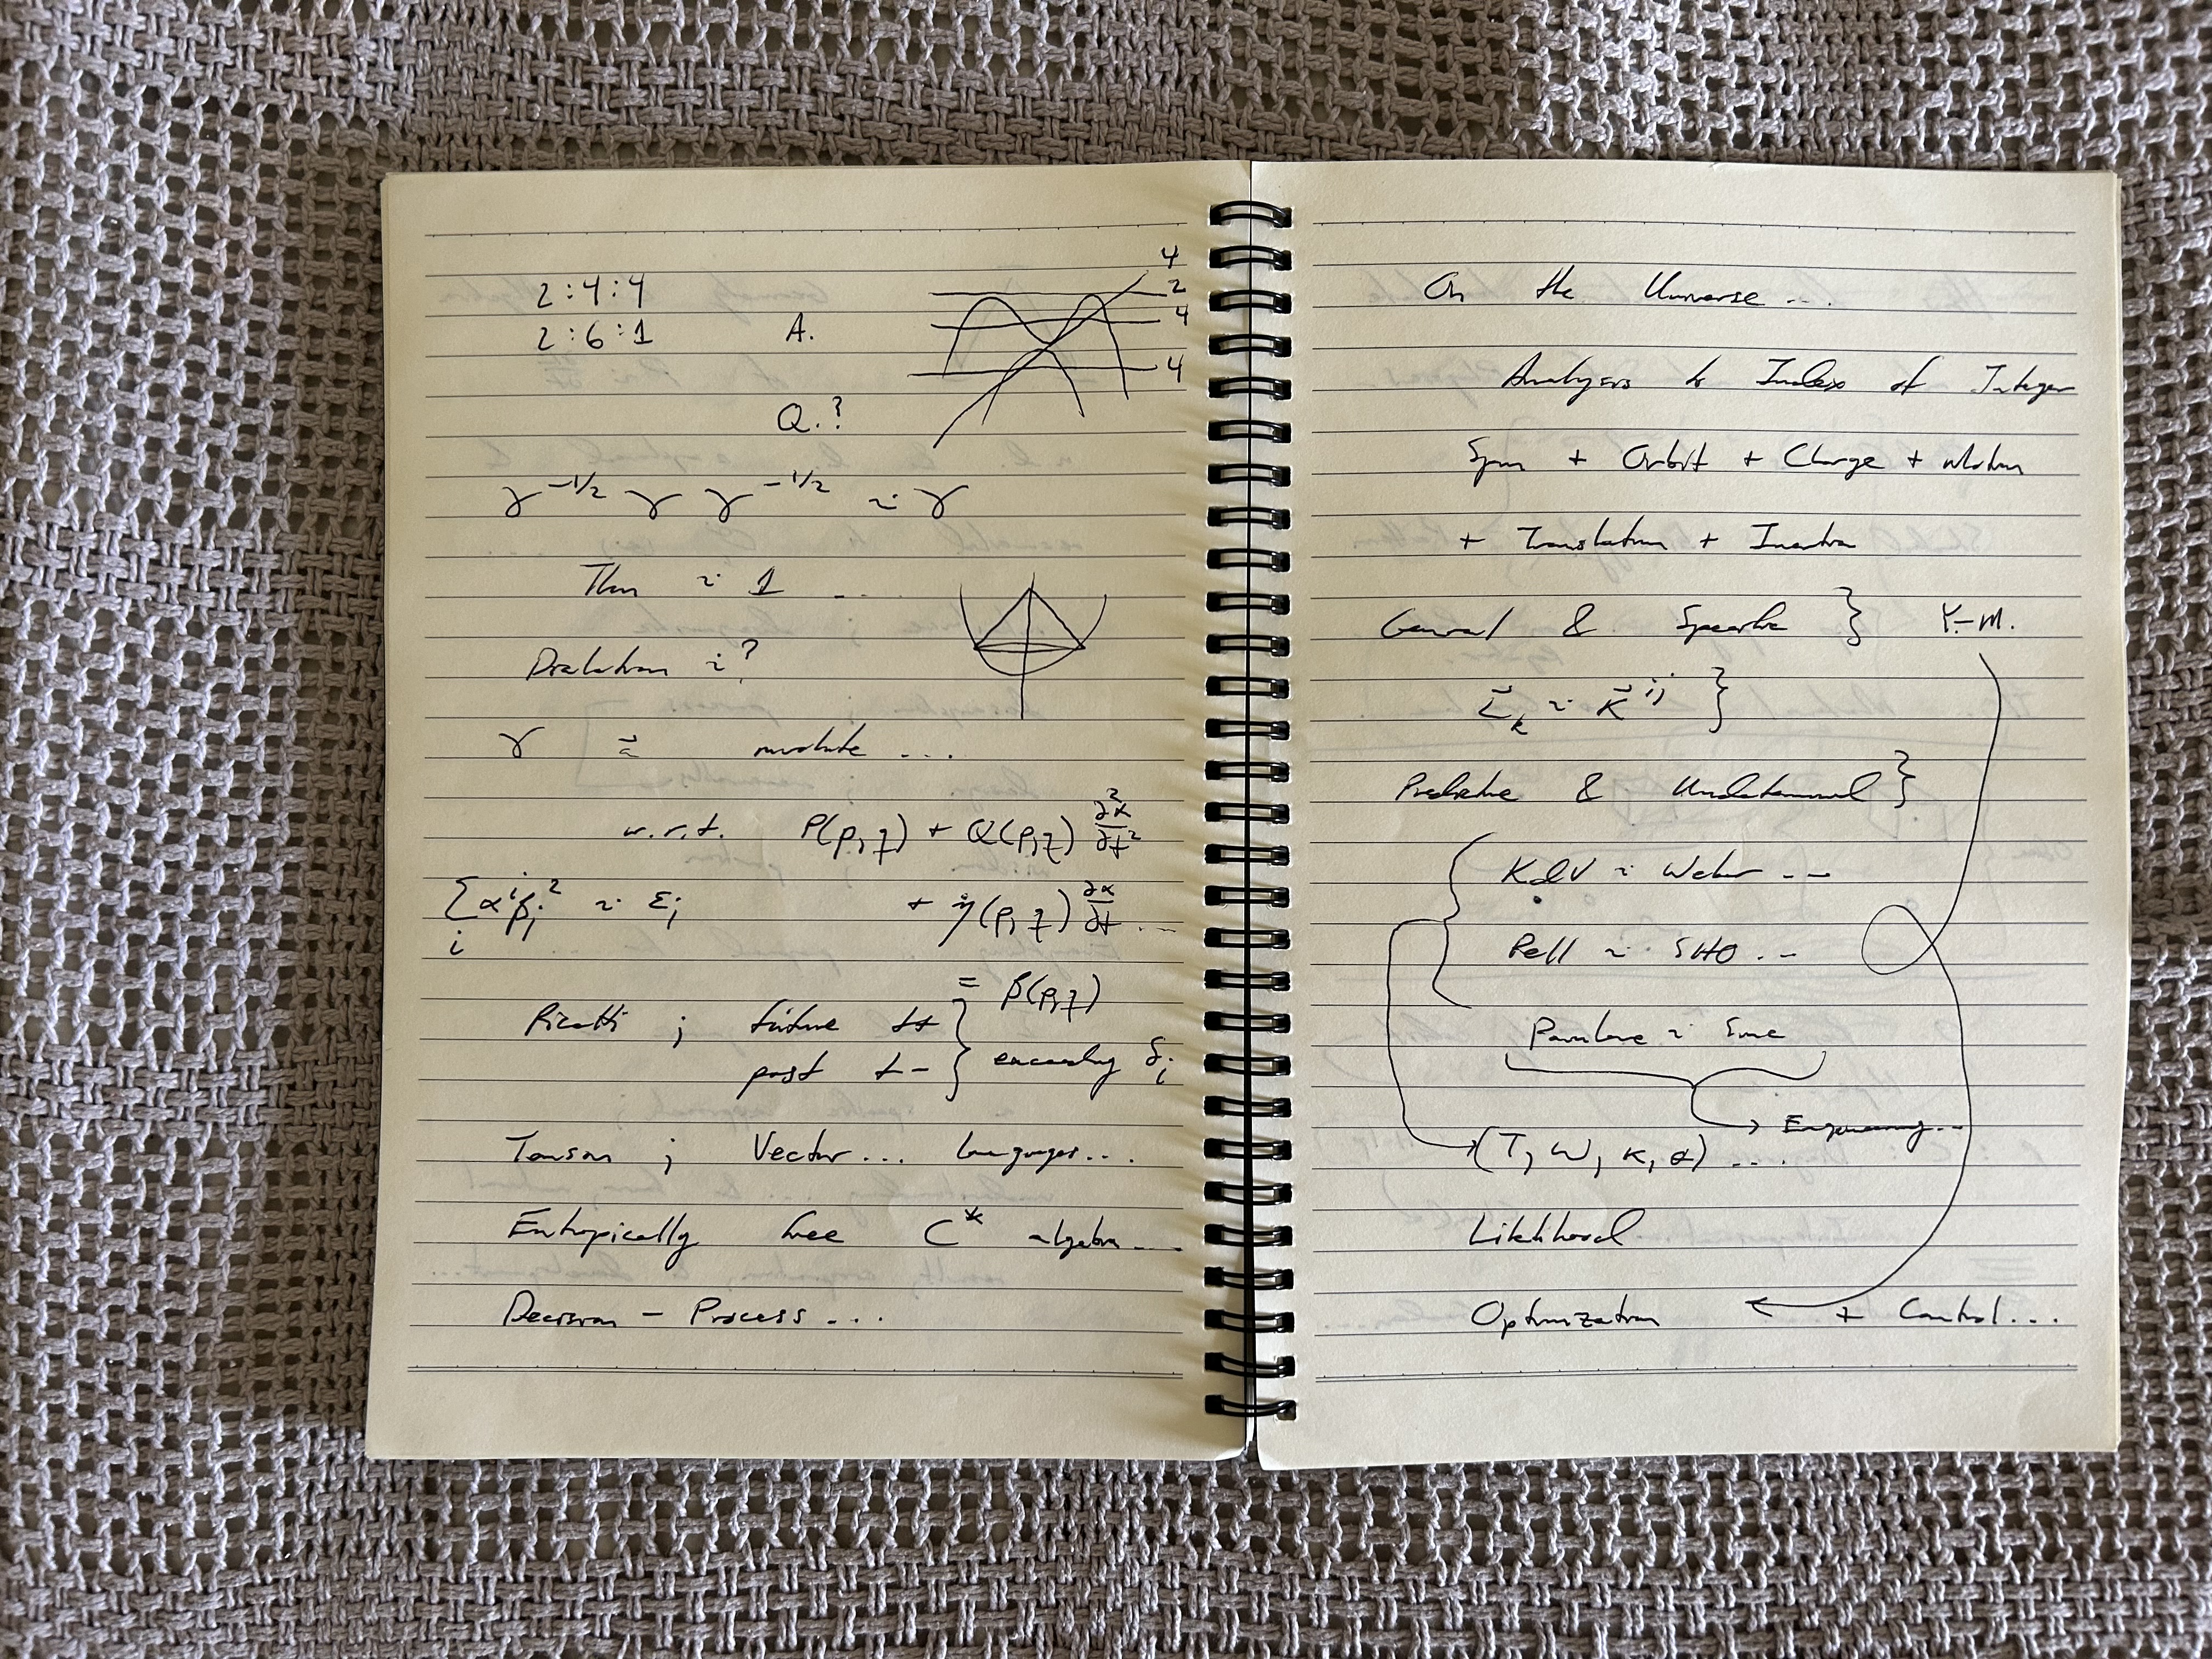 2:4:4
2:6:1 A.
Q.?
4
2
4
4
γ^-1/2 γ γ^-1/2 ~ γ
Then ~ 1 ...
?
γ ...
w.r.t. P(p,q) + Q(p,q) ∂²α/∂t²
Σ_i α^i β_i² ~ ε_j + η(p,q) ∂α/∂t ...
= β(p,q)
Ricatti ; future t+
past t- } encoding δ_i
Tensor ; Vector... languages...
Entropically free C* algebra...
Decision - Process...
On the Universe...
Analysis to Index of Integer
Spin + Orbit + Charge + Motion
+ Translation + Inertia
General & Specific } Y-M.
K^ij }
Predictive & Undetermined }
KdV ~ Weber ..
Pell ~ SHO ..
~ Sine
Engineering...
(T, ω, κ, α) ....
Likelihood
Optimization + Control...